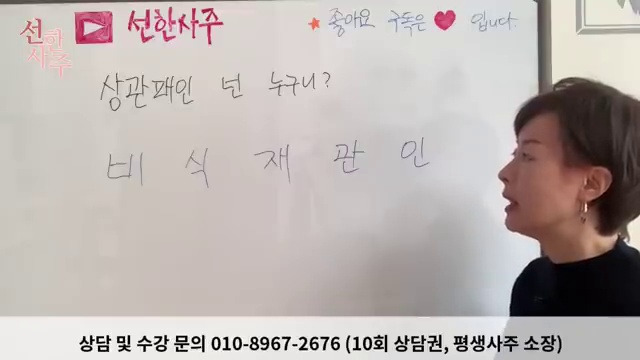 선한사주
선한사주
★ 좋아요 구독은 ♥ 입니다.
상관패인 넌 누구니?
비 식 재 관 인
상담 및 수강 문의 010-8967-2676 (10회 상담권, 평생사주 소장)